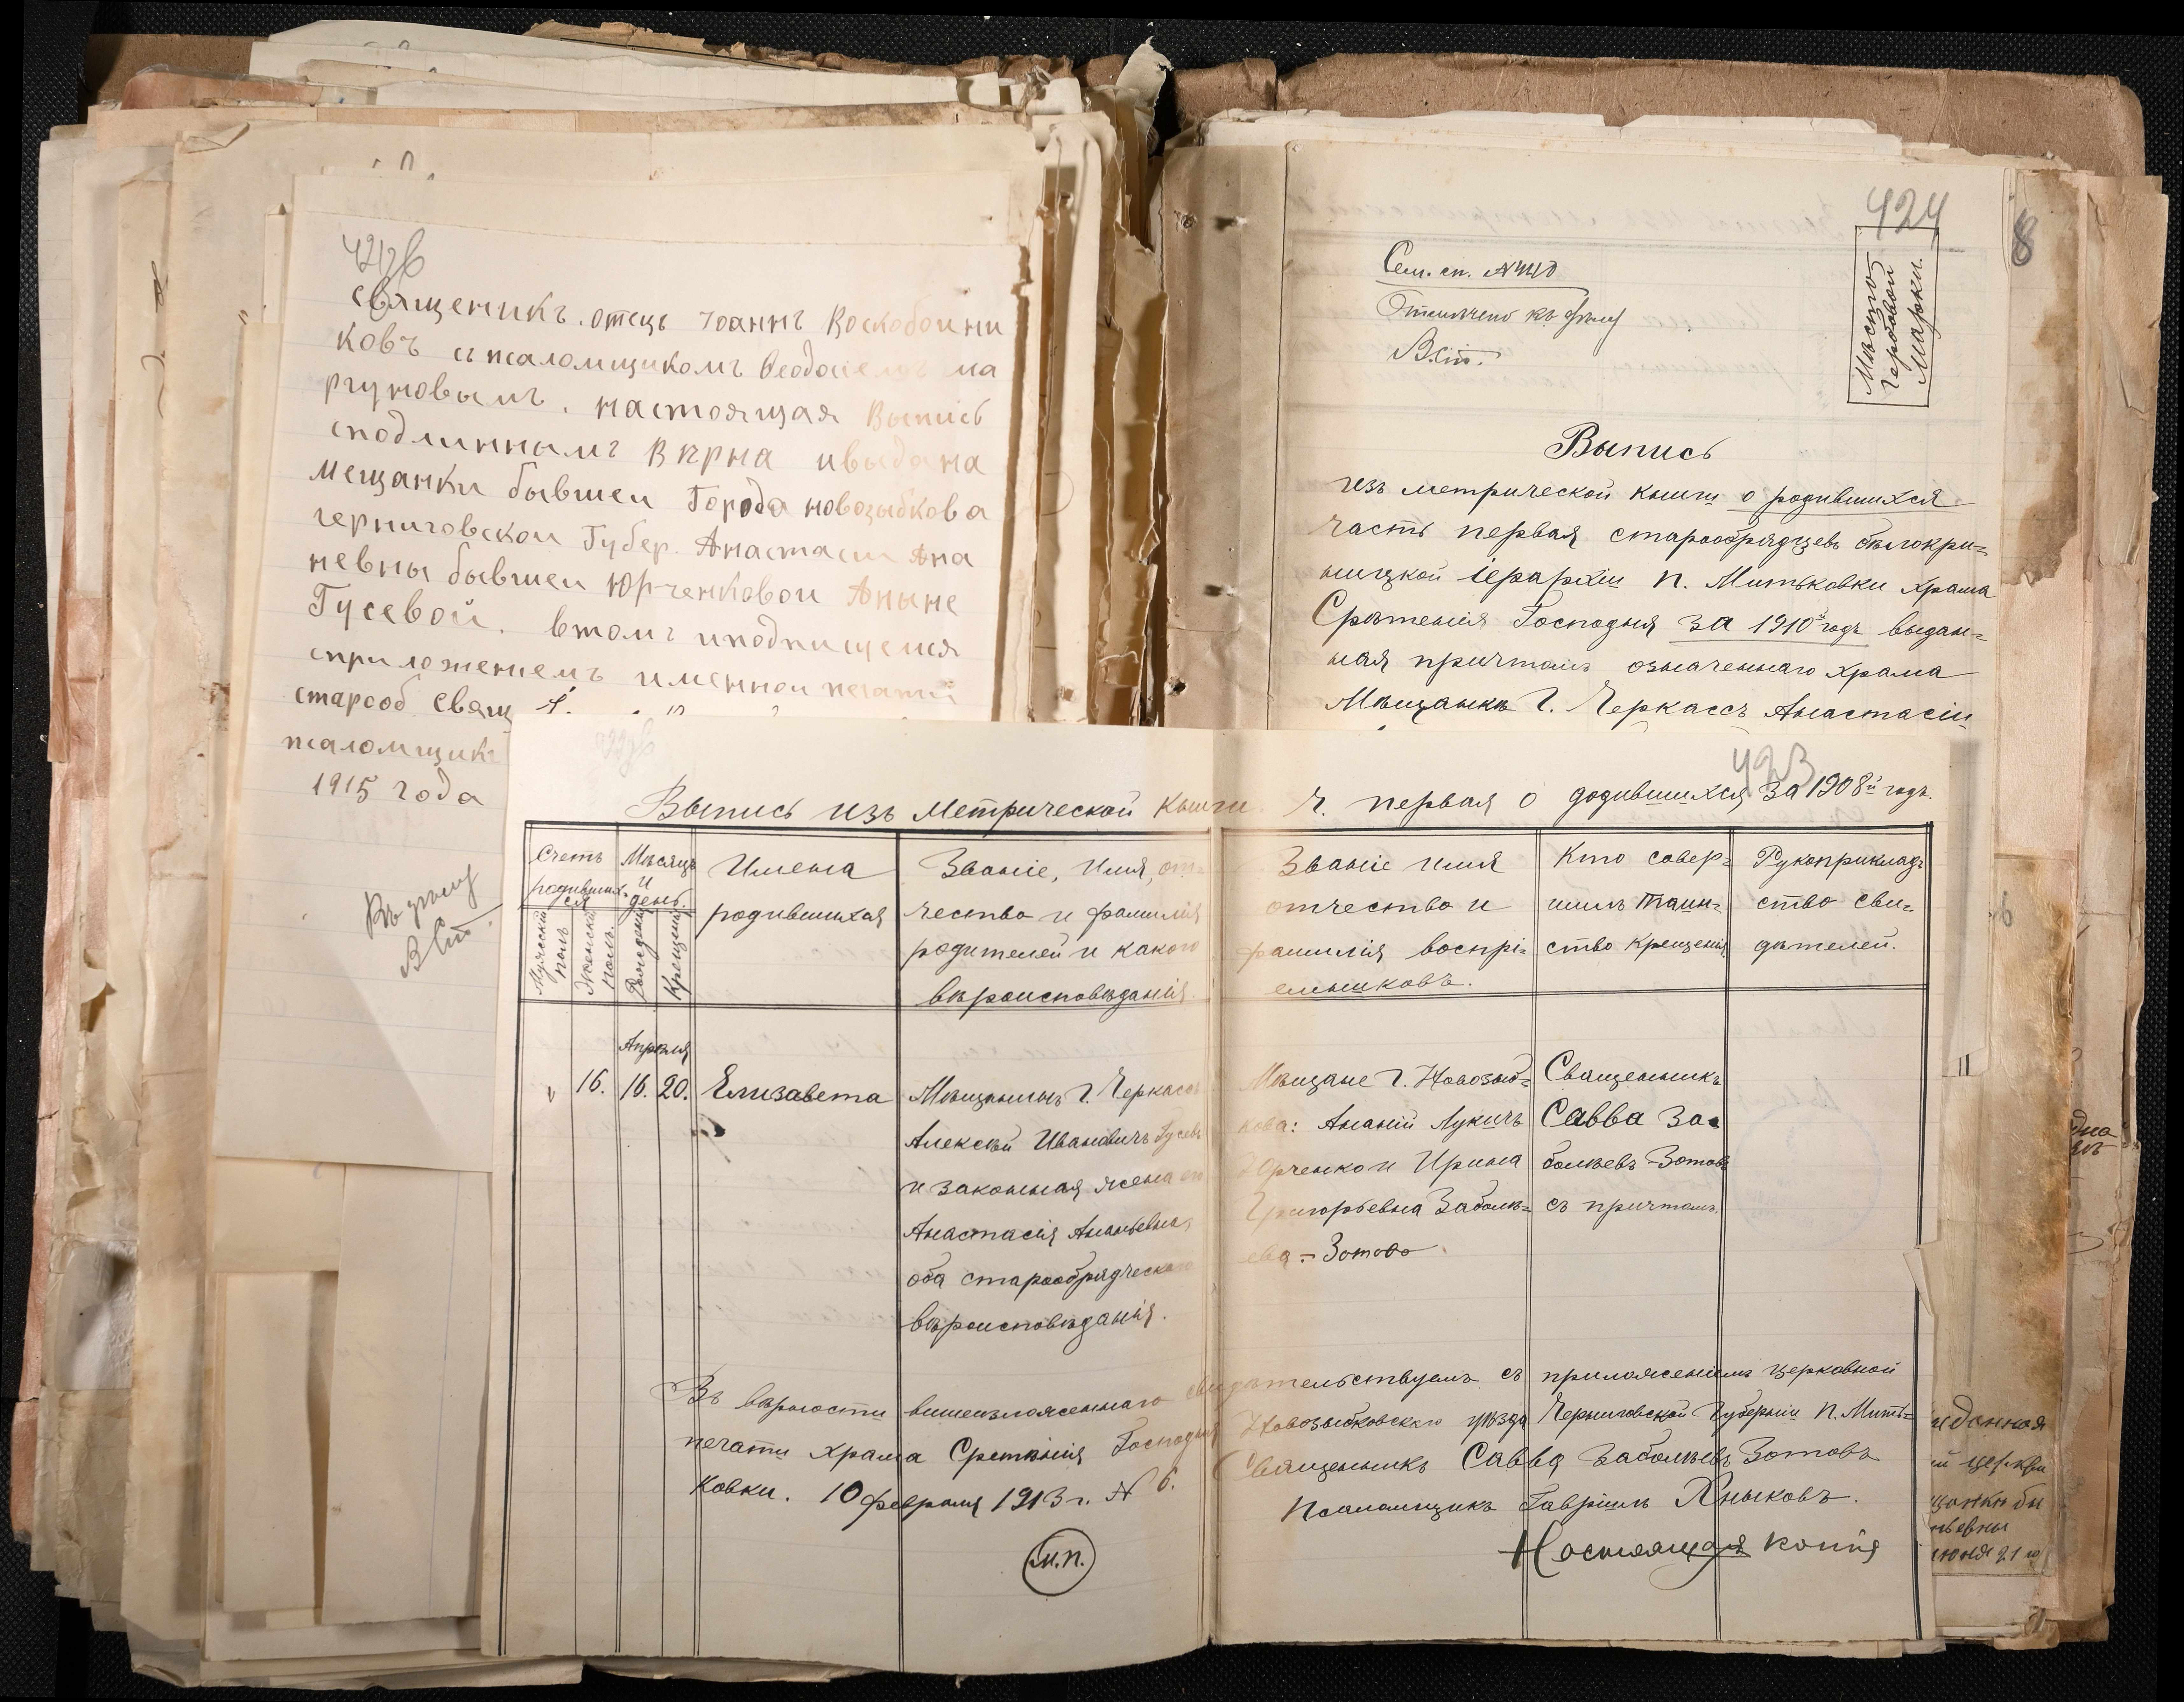 священикъ. отецъ иоаннъ Воскобоини
ковъ съ псаломщикомъ Феодосіемъ ма
ргуновымъ. настоящая Выпись
сподлиннымъ Вѣрна ивыдана
мещанки бывшеи Города новозыбкова
черниговскои Губер. Анастасіи Ана
невны бывшеи Юрченковои Аныне
Гусевой. втомъ иподпищемся
сприложениемъ именнои печатии
староб. Свящ
псаломщикъ
1915 года
Къ дѣлу
В.Ст.
424
8
Мѣсто
Гербовой
Марки.
Сем. сп. №
Отмѣчено къ дѣлу
В.Ст.
Выпись
изъ метрической книги о родившихся
часть первая старообрядцевъ бѣлокри=
ницкой іерархіи п. Митьковки храма
Срѣтенія Господня за 1910й годъ выдан=
ная причтомъ означеннаго храма
Мѣщанкѣ г. Черкассъ Анастасіи
423
Выпись изъ Метрической Книги. ч. первая о додившихся за 1908й годъ.
Счетъ родивших-ся
Мужескій полъ
Женскій полъ.
Мѣсяцъ и день.
Рожденія
Крещенія
Имена
родившихся
Званіе, имя, от-
чество и фамилія
родителей и какого
вѣроисповѣданія.
Званіе имя
отчество и
фамилія воспрі=
емниковъ.
Кто совер=
шилъ таин=
ство крещенія
Рукоприклад=
ство сви=
дѣтелей.
Апрѣля
" 16. 16. 20. Елизавета
Мѣщанинъ г. Черкассъ
Алексѣй Ивановичъ Гусевъ
и законная жена его
Анастасія Ананьевна,
оба старообрядческаго
вѣроисповѣданія.
Мѣщане г. Новозыб=
кова: Ананій Лукичъ
Юрченко и Ирина
Григорьевна Заболѣ=
ева = Зотова
Священникъ
Савва За=
болѣевъ-Зотовъ
съ причтомъ.
Въ вѣрности вишеизложеннаго свидѣтельствуемъ съ приложеніемъ церковной
печати храма Срѣтѣнія Господня Новозыбковскаго уѣзда Черниговской Губерніи п. Мить=
ковки. 10 февраля 1913 г. № 6.
Священникъ Савва Заболѣевъ Зотовъ
Псаломщикъ Гавріилъ Хныковъ.
М.П.
Настоящая копія